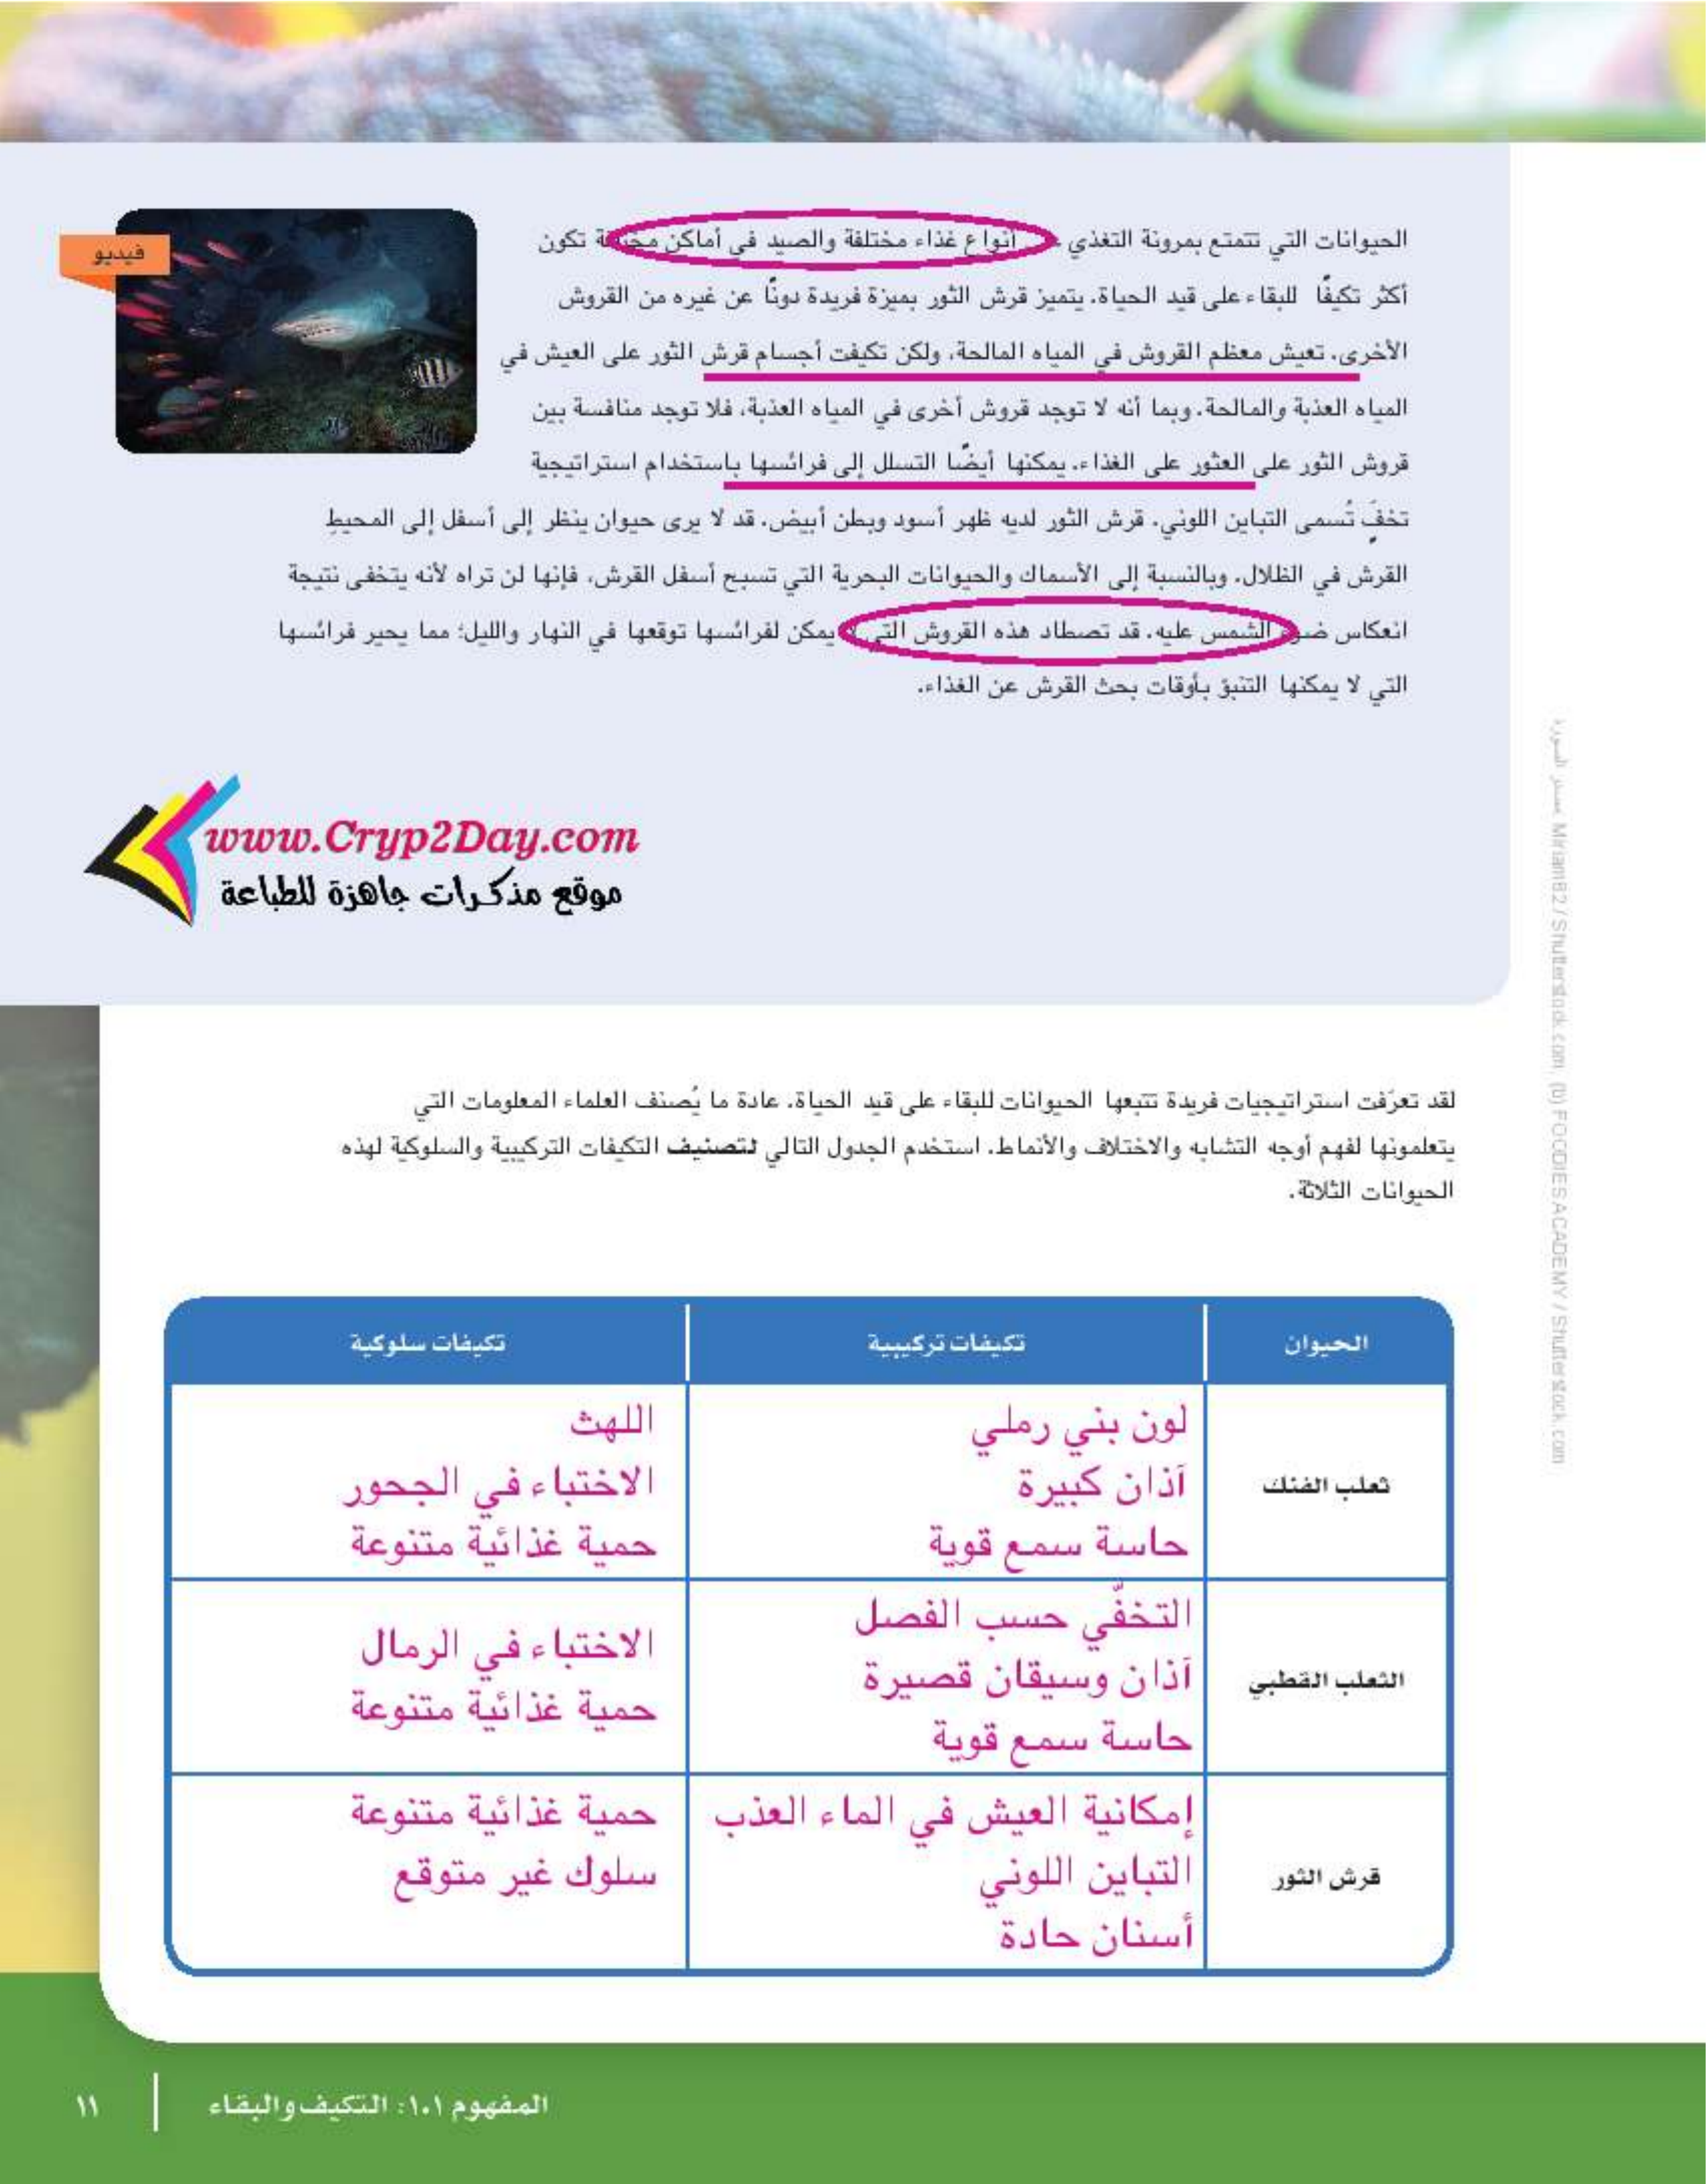 فيديو
الحيوانات التي تتمتع بمرونة التغذي على أنواع غذاء مختلفة والصيد في أماكن مختلفة تكون
أكثر تكيفًا للبقاء على قيد الحياة. يتميز قرش الثور بميزة فريدة دونًا عن غيره من القروش
الأخرى. تعيش معظم القروش في المياه المالحة، ولكن تكيفت أجسام قرش الثور على العيش في
المياه العذبة والمالحة. وبما أنه لا توجد قروش أخرى في المياه العذبة، فلا توجد منافسة بين
قروش الثور على العثور على الغذاء. يمكنها أيضًا التسلل إلى فرائسها باستخدام استراتيجية
تخفٍّ تُسمى التباين اللوني. قرش الثور لديه ظهر أسود وبطن أبيض. قد لا يرى حيوان ينظر إلى أسفل إلى المحيط
القرش في الظلال. وبالنسبة إلى الأسماك والحيوانات البحرية التي تسبح أسفل القرش، فإنها لن تراه لأنه يتخفى نتيجة
انعكاس ضوء الشمس عليه. قد تصطاد هذه القروش التي لا يمكن لفرائسها توقعها في النهار والليل؛ مما يحير فرائسها
التي لا يمكنها التنبؤ بأوقات بحث القرش عن الغذاء.
www.Cryp2Day.com
موقع مذكرات جاهزة للطباعة
لقد تعرّفت استراتيجيات فريدة تتبعها الحيوانات للبقاء على قيد الحياة. عادة ما يُصنف العلماء المعلومات التي
يتعلمونها لفهم أوجه التشابه والاختلاف والأنماط. استخدم الجدول التالي لتصنيف التكيفات التركيبية والسلوكية لهذه
الحيوانات الثلاثة.
الحيوان تكيفات تركيبية تكيفات سلوكية
ثعلب الفنك
لون بني رملي
آذان كبيرة
حاسة سمع قوية
اللهث
الاختباء في الجحور
حمية غذائية متنوعة
الثعلب القطبي
التخفّي حسب الفصل
آذان وسيقان قصيرة
حاسة سمع قوية
الاختباء في الرمال
حمية غذائية متنوعة
قرش الثور
إمكانية العيش في الماء العذب
التباين اللوني
أسنان حادة
حمية غذائية متنوعة
سلوك غير متوقع
مصدر الصورة: Miriam82 / Shutterstock.com, (b) FOODIES ACADEMY / Shutterstock.com
المفهوم ١.١: التكيف والبقاء
١١